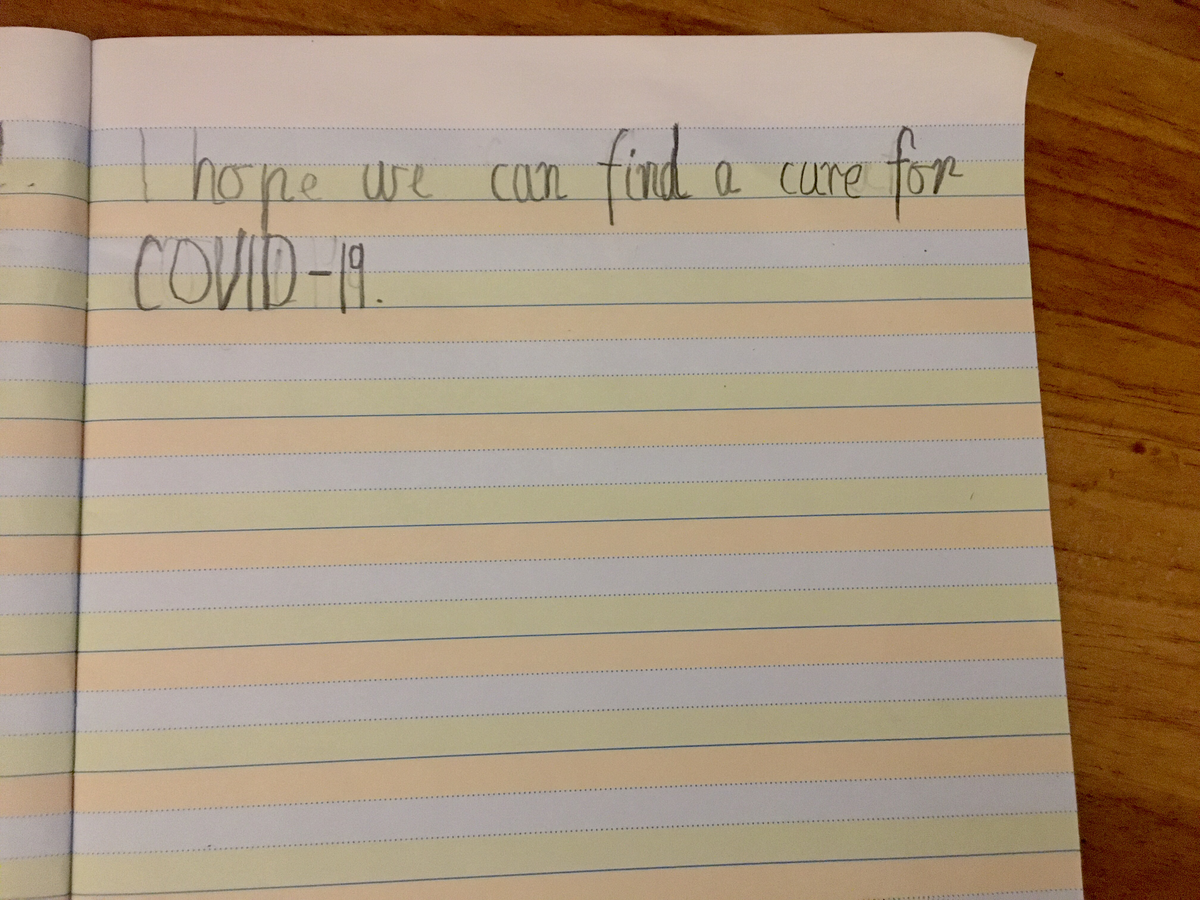 I hope we can find a cure for
COVID-19.